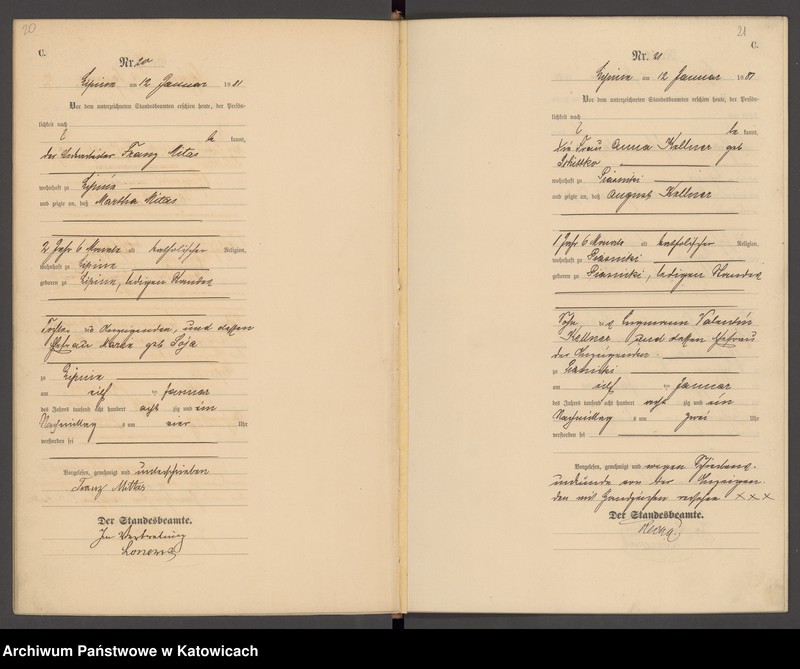 20
C.
Nr. 20
Lipine am 12 Januar 1881
Vor dem unterzeichneten Standesbeamten erschien heute, der Persön-
lichkeit nach
be kannt,
der Franz Mitas
wohnhaft zu Lipine
und zeigte an, daß Martha Mitas
2 Jahr 6 Monate alt katholischer Religion,
wohnhaft zu Lipine
geboren zu Lipine, ledigen Standes
Tochter des Anzeigenden, und dessen
Ehefrau Maria geb Soja
zu Lipine
am eilf ten Januar
des Jahres tausend acht hundert acht zig und ein
Nachmittag s um vier Uhr
verstorben sei
Vorgelesen, genehmigt und unterschrieben
Franz Mittas
Der Standesbeamte.
In Vertretung
21
C.
Nr. 21
Lipine am 12 Januar 1881
Vor dem unterzeichneten Standesbeamten erschien heute, der Persön-
lichkeit nach
be kannt,
die Frau Anna Kellner geb
Schittko
wohnhaft zu Piasniki
und zeigte an, daß August Kellner
1 Jahr 6 Monate alt katholischer Religion,
wohnhaft zu Piasniki
geboren zu Piasniki, ledigen Standes
Sohn des Bergmann Valentin
Kellner und dessen Ehefrau
der Anzeigenden
zu Piasniki
am eilf ten Januar
des Jahres tausend acht hundert acht zig und ein
Nachmittag s um zwei Uhr
verstorben sei
Vorgelesen, genehmigt und wegen Schreibens-
unkunde von der Anzeigen-
den mit Handzeichen versehen XXX
Der Standesbeamte.
Archiwum Państwowe w Katowicach